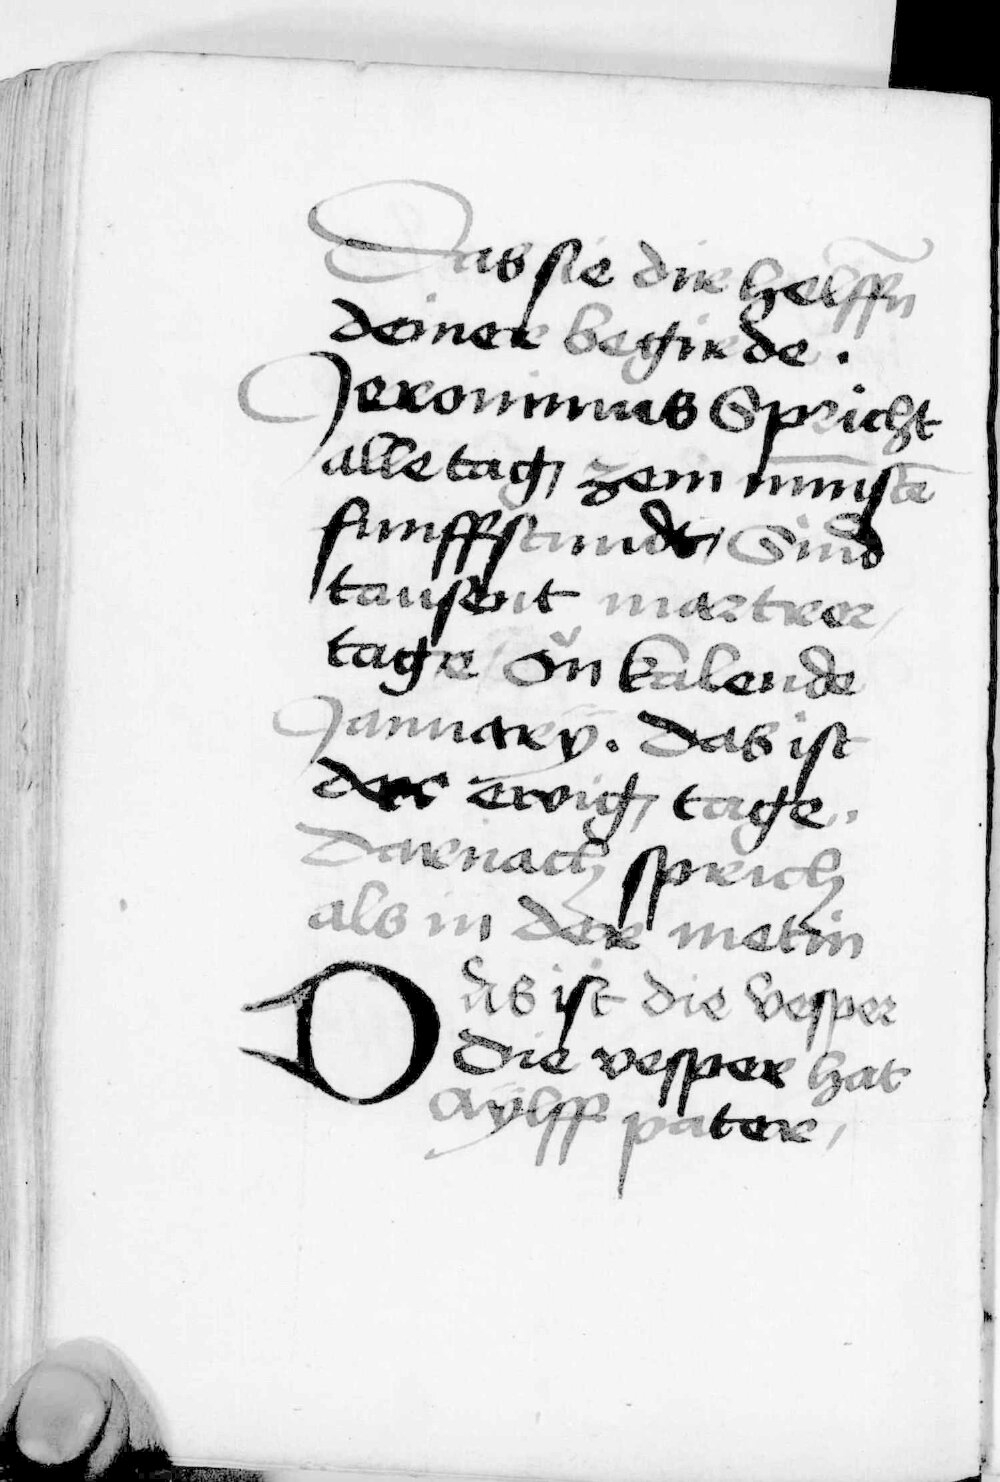 Das sie dir helffn̄
deiner begirde .
Jeronimus Spricht
alle tag / zem minstē
funffstundt / Sind
tausent martrer /
tage / ǒn kalende
January . Das ist
der ewig / tage .
Darnach sprich
als in der metin
Das ist die vesper
die vesper hat
Aylff pater /